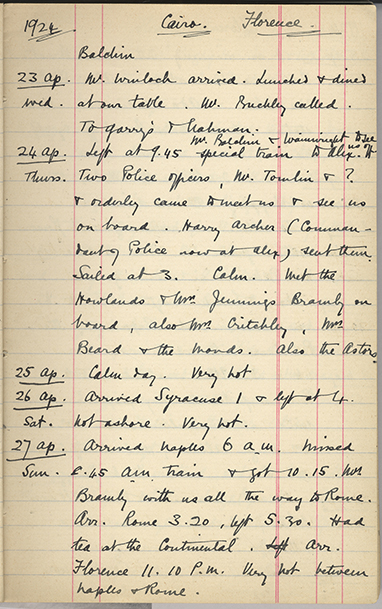 1924 Cairo. Florence.
Baldwin
23 Ap. Mr. Winlock arrived. Lunched & dined
Wed. at our table. Mr. Buckley called.
To Garry's & Nahman.
Mr. Baldwin & Wainwright to see us off
24 Ap. Left at 9.45 special train to Alex.
Thurs. Two Police officers, Mr. Tomlin & ?
& orderly came to meet us & see us
on board. Harry Archer (Comman-
dant of Police now at Alex) sent them.
Sailed at 3. Calm. Met the
Howlands & Mrs Jennings Bramly on
board, also Mrs Critchley, Mrs
Beard & the Monds. Also the Astors
25 Ap. Calm day. Very hot
26 Ap. Arrived Syracuse 1 & left at 4.
Sat. Not ashore. Very hot.
27 Ap. Arrived Naples 6 a.m. Missed
Sun. 8.45 a.m. train & got 10.15. Mrs
Bramly with us all the way to Rome.
Arr. Rome 3.20, left 5.30. Had
tea at the Continental. Left Arr.
Florence 11.10 P.M. Very hot between
Naples & Rome.